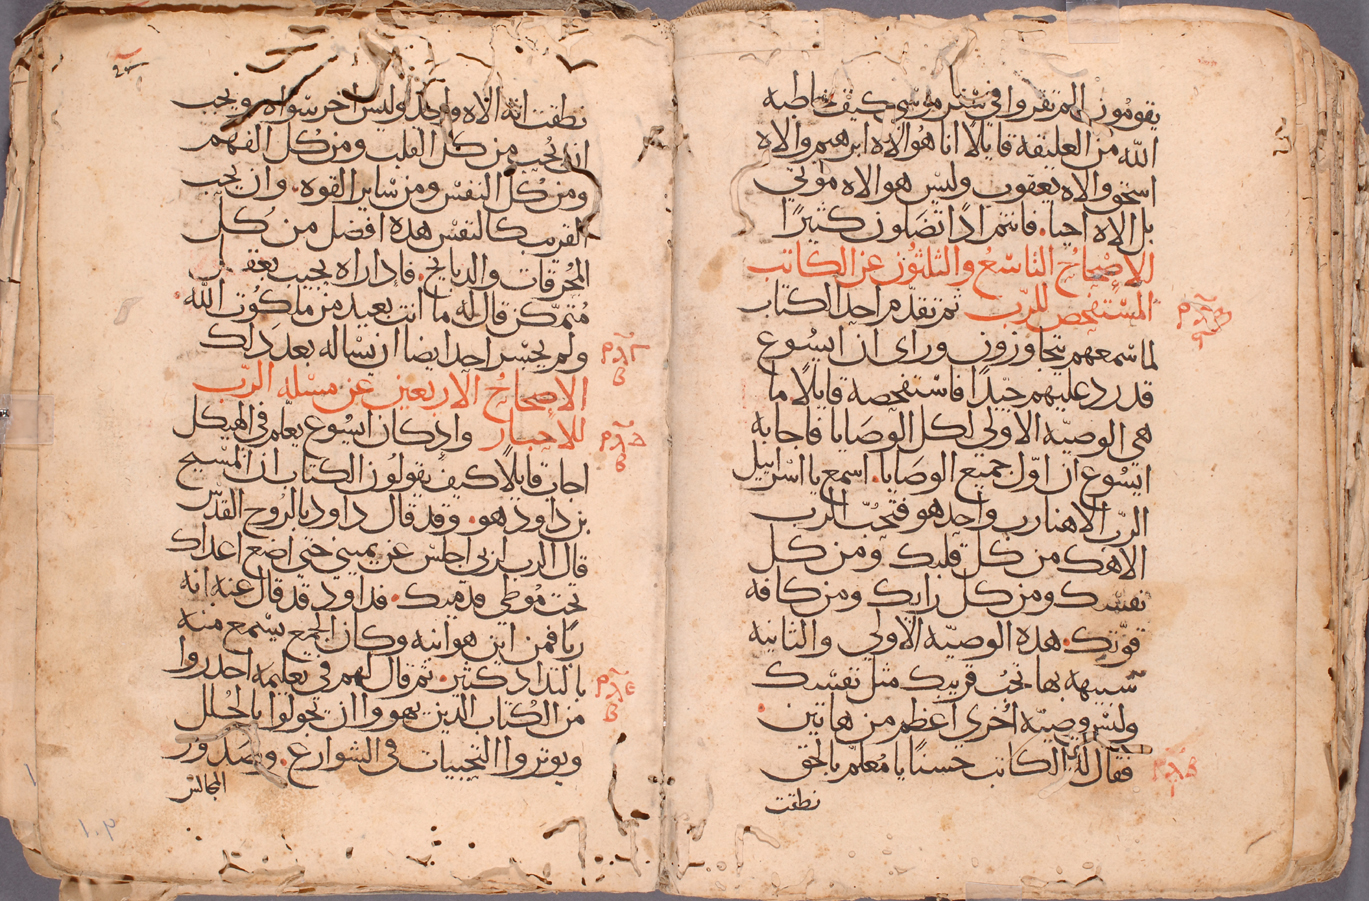 يقومون الم تقروا في سفر موسي كيف خاطبه
الله من العليقة قايلا انا هو الاه ابرهيم والاه
اسحق والاه يعقوب وليس هو الاه موتي
بل الاه احيا. فانتم اذًا تضلون كثيرًا
الاصحاح التاسع والثلثون عن الكاتب
المستفحص للرب ثم تقدم احد الكتاب
لما سمعهم يتجاوزون وراي ان ايسوع
قد رد عليهم جيدًا فاستفحصه قايلًا ما
هي الوصيه الاولي لكل الوصايا فاجابه
ايسوع ان اوّل جميع الوصايا. اسمع يا اسراييل
الربّ الاهنا رب واحد هو فتحبّ الرب
الاهك من كل قلبك ومن كل
نفسك ومن كل رايك ومن كافه
قوّتك. هذه الوصيّه الاولي والثانيه
شبيهه بها تحب قريبك مثل نفسك
وليس وصيّه اخري اعظم من هاتين.
فقال له الكاتب حسنًا يا معلم بالحق
نطقت
نطقت انه الاه واحد وليس اخر سواه ويجب
ان يُحب من كل القلب ومن كل الفهم
ومن كل النفس ومن ساير القوه. وان يحب
القريب كالنفس هذه افضل من كل
المحرقات والدبايح. فاذ اراه يجيب بعقل
مُتمكن قال له ما انت بعيد من ملكوت الله.
ولم يجسر احد ايضا ان يساله بعد ذلك
الاصحاح الاربعين عن مسله الربّ
للاحبار واذ كان ايسوع يعلّم في الهيكل
اجاب قايلًا كيف يقولون الكتاب ان المسيح
بن داود هو. وقد قال داود بالروح القدس
قال الرب لربي اجلس عن يميني حتي اضع اعداك
تحت موطي قدميك. فداود قد قال عنه انه
ربًا فمن اين هو ابنه وكان الجمع يسمع منه
بالتداد كثير. ثم قال لهم في تعليمه احدروا
من الكُتاب الدين يهووا ان يجولوا بالحُلل
ويوتروا التحييات في الشوارع. وصدور
المجالس